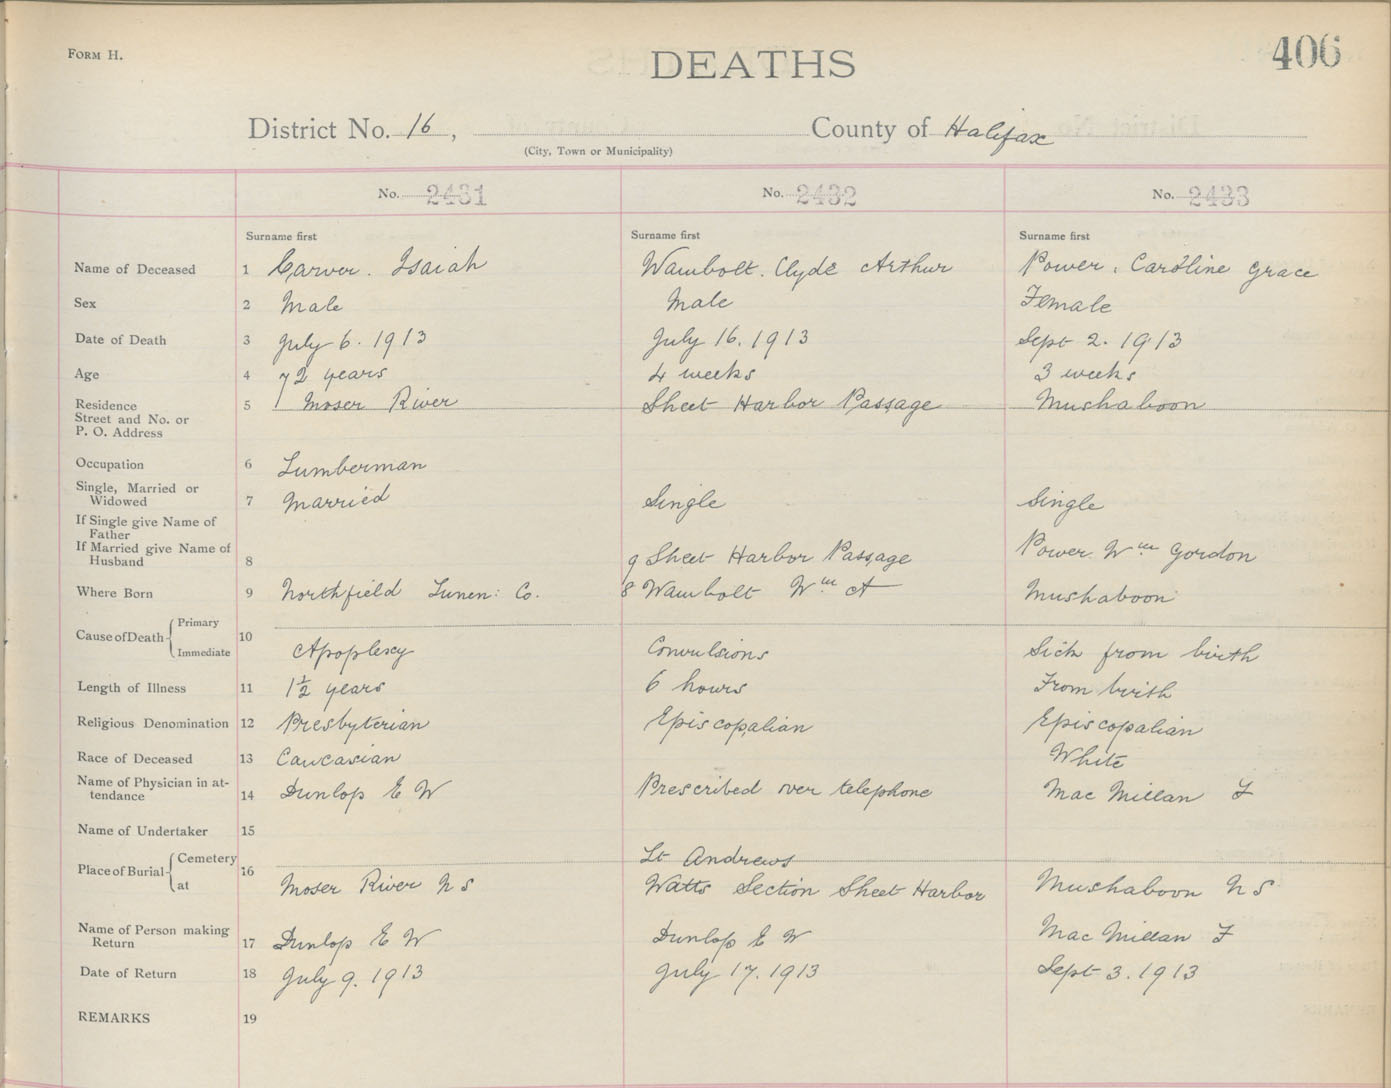 FORM H.
DEATHS
406
District No. 16, County of Halifax
(City, Town or Municipality)
No. 2431 No. 2432 No. 2433
Surname first Surname first Surname first
Name of Deceased 1 Carver. Isaiah Wambolt. Clyde Arthur Power. Caroline Grace
Sex 2 Male Male Female
Date of Death 3 July 6. 1913 July 16. 1913 Sept 2. 1913
Age 4 72 years 4 weeks 3 weeks
Residence 5 Moser River Sheet Harbor Passage Mushaboon
Street and No. or
P. O. Address
Occupation 6 Lumberman
Single, Married or
Widowed 7 Married Single Single
If Single give Name of
Father
If Married give Name of
Husband 8 9 Sheet Harbor Passage Power. Wm Gordon
Where Born 9 Northfield Lunen: Co. 8 Wambolt Wm A Mushaboon
Cause of Death Primary
10
Immediate Apoplexy Convulsions Sick from birth
Length of Illness 11 1½ years 6 hours From birth
Religious Denomination 12 Presbyterian Episcopalian Episcopalian
Race of Deceased 13 Caucasian White
Name of Physician in at-
tendance 14 Dunlop E W Prescribed over telephone Mac Millan F
Name of Undertaker 15
Place of Burial Cemetery 16 St Andrews
at Moser River N S Watts Section Sheet Harbor Mushaboon N S
Name of Person making
Return 17 Dunlop E W Dunlop E W Mac Millan F
Date of Return 18 July 9. 1913 July 17. 1913 Sept 3. 1913
REMARKS 19